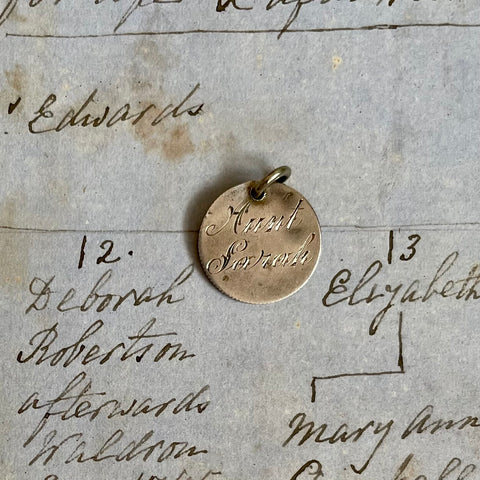 Edwards
Aunt
Sarah
12.
Deborah
Robertson
afterwards
Waldron
13
Elizabeth
Mary Ann